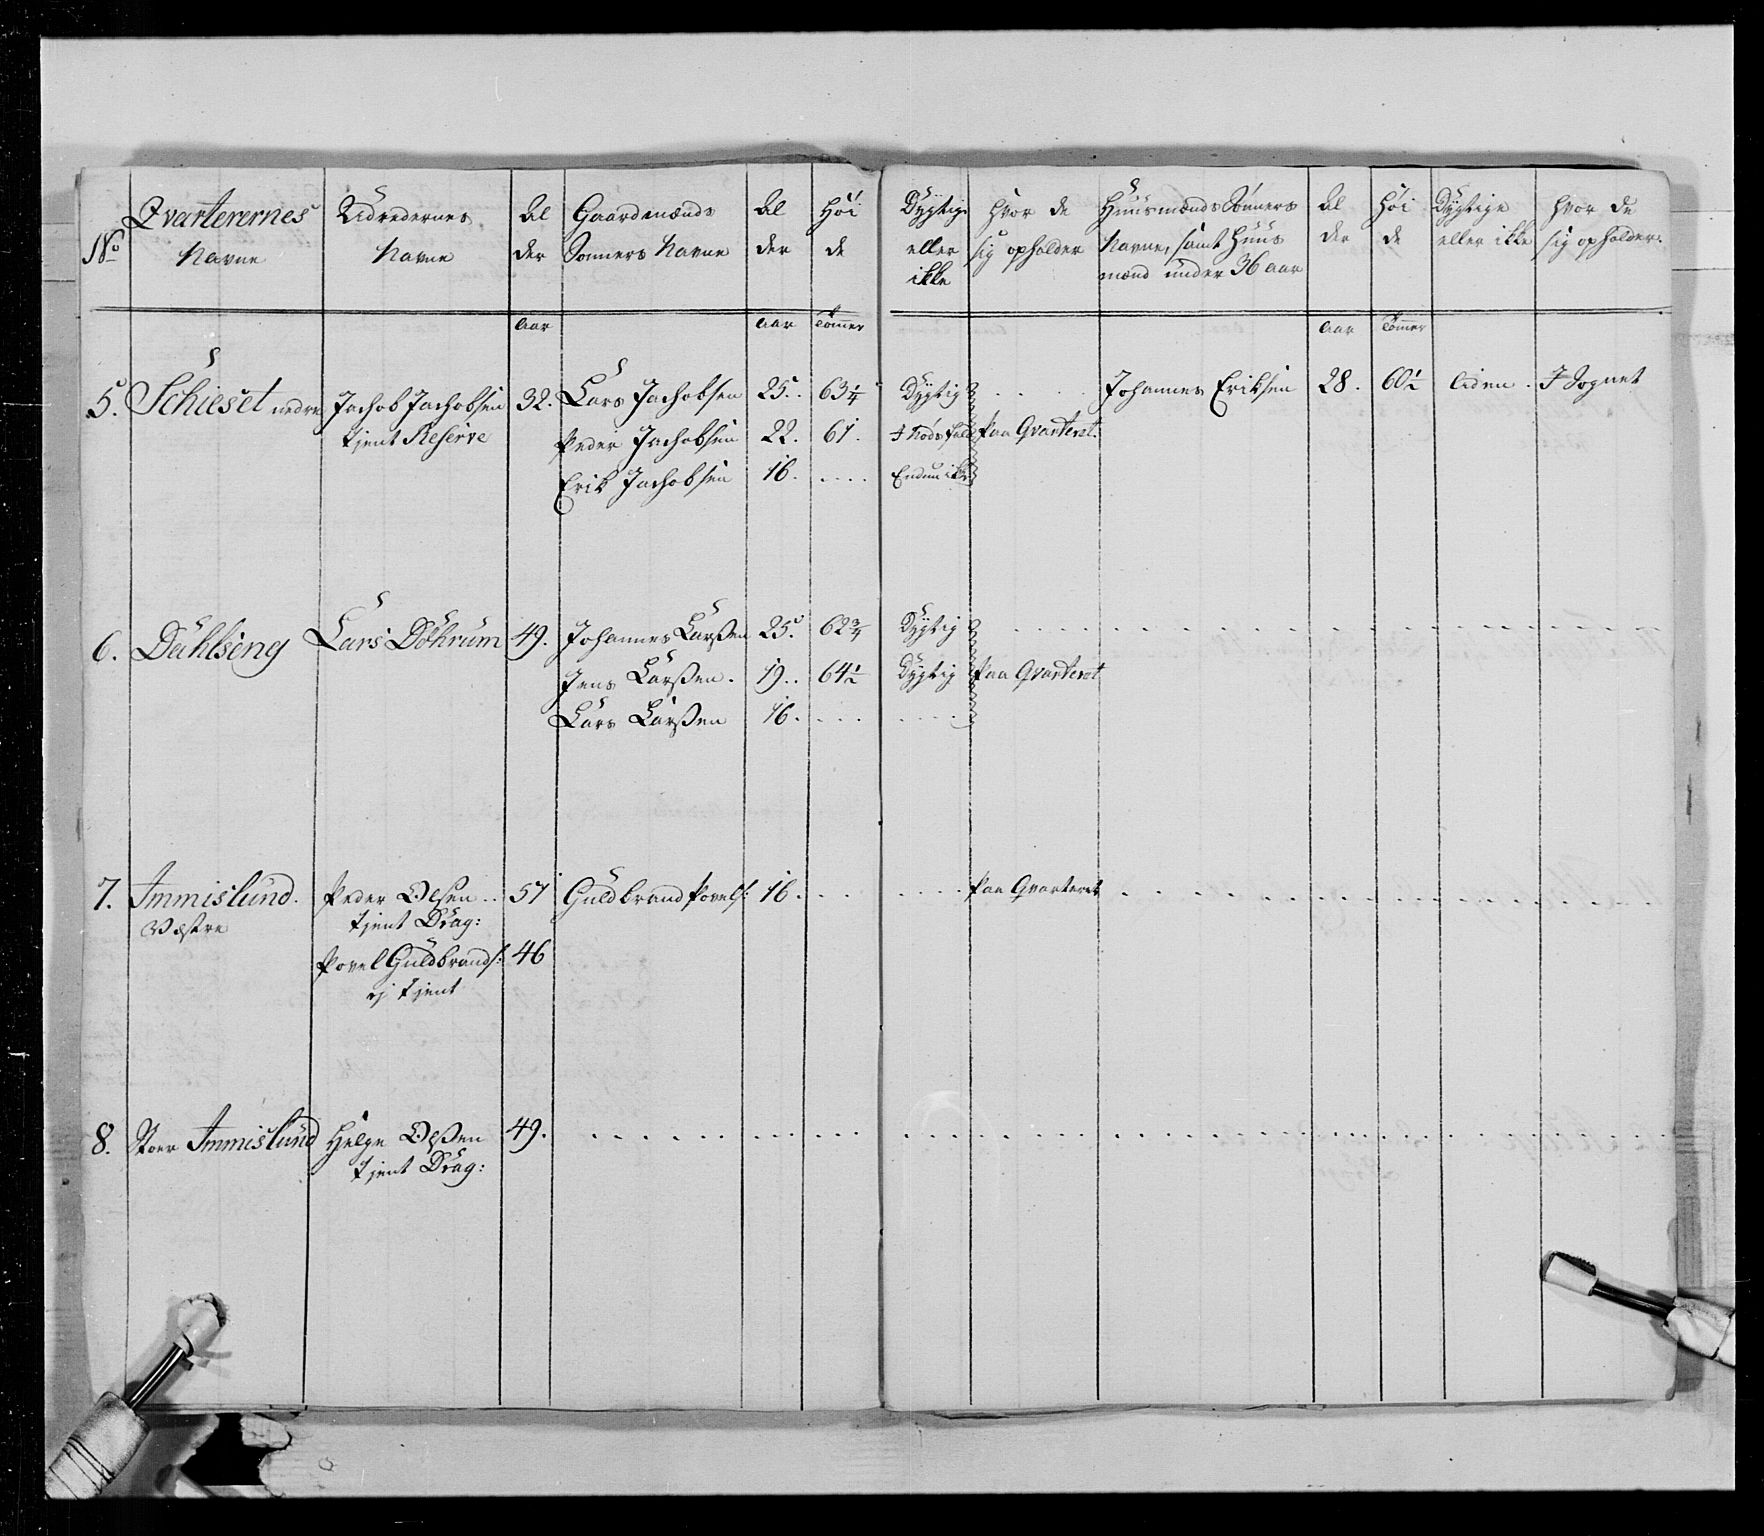 No Qvarterernes Navne | Udredernes Navne | Al der | Gaardmænds Sønners Navne | Al der | Höi de | Dygtige eller ikke | hvor de sig opholder | Huusmænds Sønners Navne, samt Huus mænd under 36 aar | Al der | Höi de | Dygtige eller ikke | hvor de sig opholder.
Aar | Aar | Tommer | Aar | Tommer
5. Schieset nedre | Jachob Jachobsen | 32. | Lars Jachobsen | 25. | 63 1/4 | Dygtig | . . . . | Johannes Eriksen | 28. | 60 1/2 | liden. | I Sognet
tjent Reserve | Peder Jachobsen | 22. | 61. | I Nøds fald | paa Qvarteret.
Erik Jachobsen | 16. | . . . . | Endnu ikke
6. Dahlseng | Lars Döhrum | 49. | Johannes Larßen | 25. | 62 3/4 | Dygtig
Jens Larßen. | 19. | 64 1/2 | Dygtig | paa Qvarteret
Lars Larßen | 16.
7. Immislund. | Peder Olsen | 57 | Guldbrand Povels: | 16. | paa Qvarteret
Vestre | tjent Drag:
Povel Guldbrands: | 46
ej tjent
8. Stoer Immislund | Helge Olßen | 49.
tjent Drag: